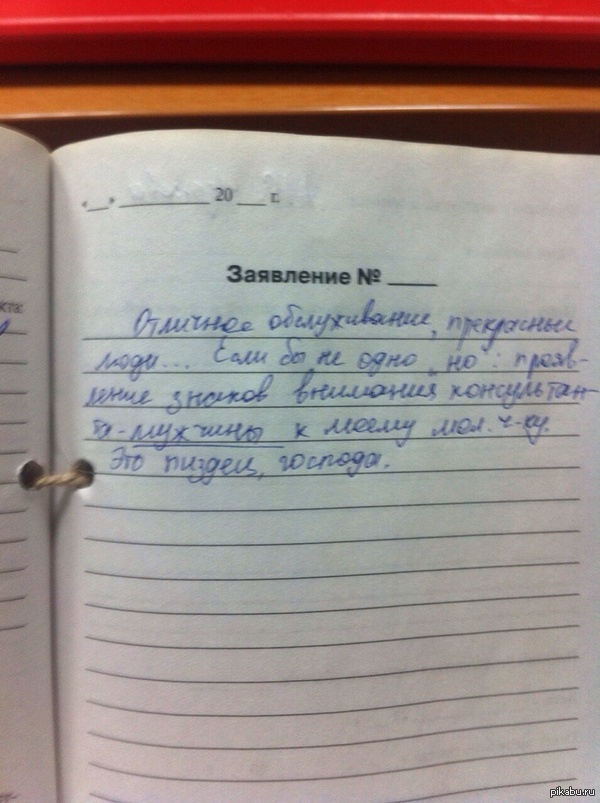 «__» __________ 20 ___ г.
Заявление № ____
Отличное обслуживание, прекрасные
люди... Если бы не одно „но": прояв-
ление знаков внимания консультан-
та-мужчины к моему мол. ч-ку.
Это пиздец, господа.
кта:
pikabu.ru